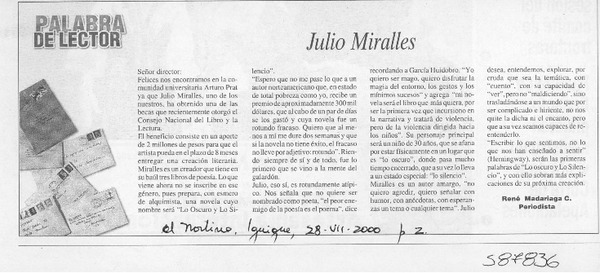 PALABRA
DE LECTOR
Julio Miralles
Señor director:
Felices nos encontramos en la co-
munidad universitaria Arturo Prat
ya que Julio Miralles, uno de los
nuestros, ha obtenido una de las
becas que recientemente otorgó el
Consejo Nacional del Libro y la
Lectura.
El beneficio consiste en un aporte
de 2 millones de pesos para que el
artista poeta en el plazo de 8 meses
entregue una creación literaria.
Miralles es un creador que tienen en
su baúl tres libros de poesía. Lo que
viene ahora no se inscribe en ese
género, pues prepara, con estoico
de alquimista, una novela cuyo
nombre será "Lo Oscuro y Lo Si-
lencio".
"Espero que no me pase lo que a un
autor norteamericano que, en estado
de total pobreza como yo, recibe un
premio de aproximadamente 300 mil
dólares, que al cabo de un par de días
se los gastó y cuya novela fue un
rotundo fracaso. Quiero que al me-
nos a mí me dure dos semanas y que
si la novela no tiene éxito, el fracaso
no lleve por adjetivo: rotundo". Rien-
do siempre de sí y de todo, fue lo
primero que se vino a la mente del
galardón.
Julio, eso sí, es rotundamente atípi-
co. Nos señala que no quiere ser
nombrado como poeta, "el peor ene-
migo de la poesía es el poema", dice
recordando a García Huidobro. "Yo
quiero ser mago, quiero disfrutar la
magia del entorno, los gestos y los
mínimos sucesos" y agrega, "mi no-
vela será el libro que más quiera, por
ser la primera vez que incursiono en
la narrativa y tratará de violencia,
pero de la violencia dirigida hacia
los niños". Su personaje principal
será un niño de 30 años, que se afana
por estar físicamente en un lugar que
es "lo oscuro", donde pasa mucho
tiempo encerrado, que a su vez lo lleva
a un estado especial: "lo silencio".
Miralles es un autor amargo, "no
quiero agredir, quiero señalar con
humor, con anécdotas, con esperan-
zas un tema o cualquier tema". Julio
desea, entendemos, explorar, por
cruda que sea la temática, con
"cuento", con su capacidad de
"ver", pero no "maldiciendo", sino
trasladándose a un mundo que por
ser complicado e hiriente, no nos
quite la dicha ni el encanto, pero
que a su vez seamos capaces de re-
entenderlo.
"Escribir lo que sentimos, no lo
que nos han enseñado a sentir"
(Hemingway), serán las primeras
palabras de "Lo Oscuro y Lo Silen-
cio", y con ello sobran más expli-
caciones de su próxima creación.
René Madariaga C.
Periodista
El Nortino, Iquique, 28-VII-2000 p 2.
587836